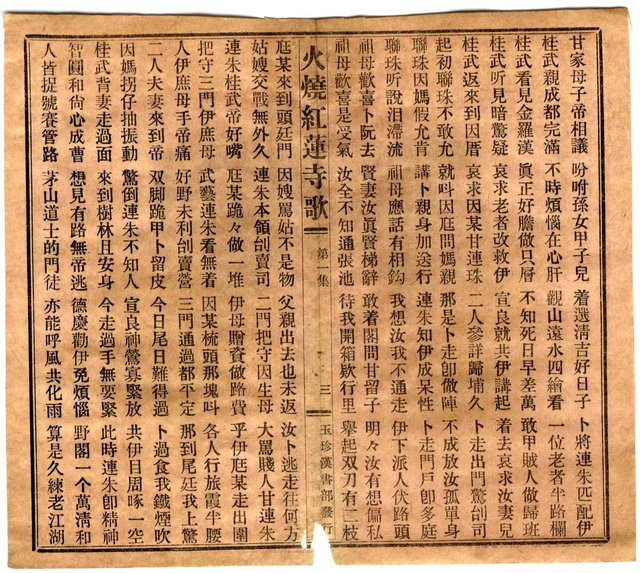 甘家母子帝相議 吩咐孫女甲子兒 着選清吉好日子 卜將連朱匹配伊
桂武親成都完滿 不時煩惱在心肝 觀山遠水四繪看 一位老者半路欄
桂武看見金羅漢 眞正好膽做只厝 不知死日早差萬 敢甲賊人做歸班
桂武听見暗驚疑 哀求老者改救伊 宣良就共伊講起 着去哀求汝妻兒
桂武返來到因厝 哀求因某甘連珠 二人參詳歸埔久 卜走出門驚刣司
起初聯珠不敢允 就叫因厝問媽親 那是卜走卽做陣 不成放汝孤單身
聯珠因媽假允肯 講卜親身加送行 連朱知伊成杲性 卜走門戶卽多庭
聯珠听說汨滯流 祖母應話有相鈎 我想汝我不通走 伊下派人伏路頭
祖母歡喜卜阮去 賢妻汝眞賢梯辭 敢着閣問甘留子 明々汝有想偏私
祖母歡喜是受氣 汝全不知通張池 待我開箱欵行里 舉起双刀有二枝
火燒紅蓮寺歌 第一集 三 玉珍漢書部發行
尫某來到頭廷門 因嫂罵姑不是物 父親出去也未返 汝卜逃走往何方
姑嫂交戰無外久 連朱本領刣賣司 二門把守因生母 大罵賤人甘連朱
連朱桂武帝好嘴 尫某跪々做一堆 伊母贈資做路費 乎伊尫某走出圍
把守三門伊庶母 武藝連朱看無着 因某梳頭那塊叫 各人行旅霞半腰
人伊庶母手帝痛 好野未利刣賣營 三門通過都平定 那到尾廷我上驚
二人夫妻來到帝 双脚跪甲卜留皮 今日尾日難得過 卜過食我鐵煙吹
因媽拐仔抽振動 驚倒連朱不知人 宣良神鶯寡緊放 共伊目周啄一空
桂武背妻走過面 來到樹林且安身 今走過手無要緊 此時連朱卽精神
智圓和尙心成曹 想見有路無帝逃 德慶勸伊免煩惱 野閣一个萬淸和
人皆捉號賽管路 茅山道士的門徒 亦能呼風共化雨 算是久練老江湖